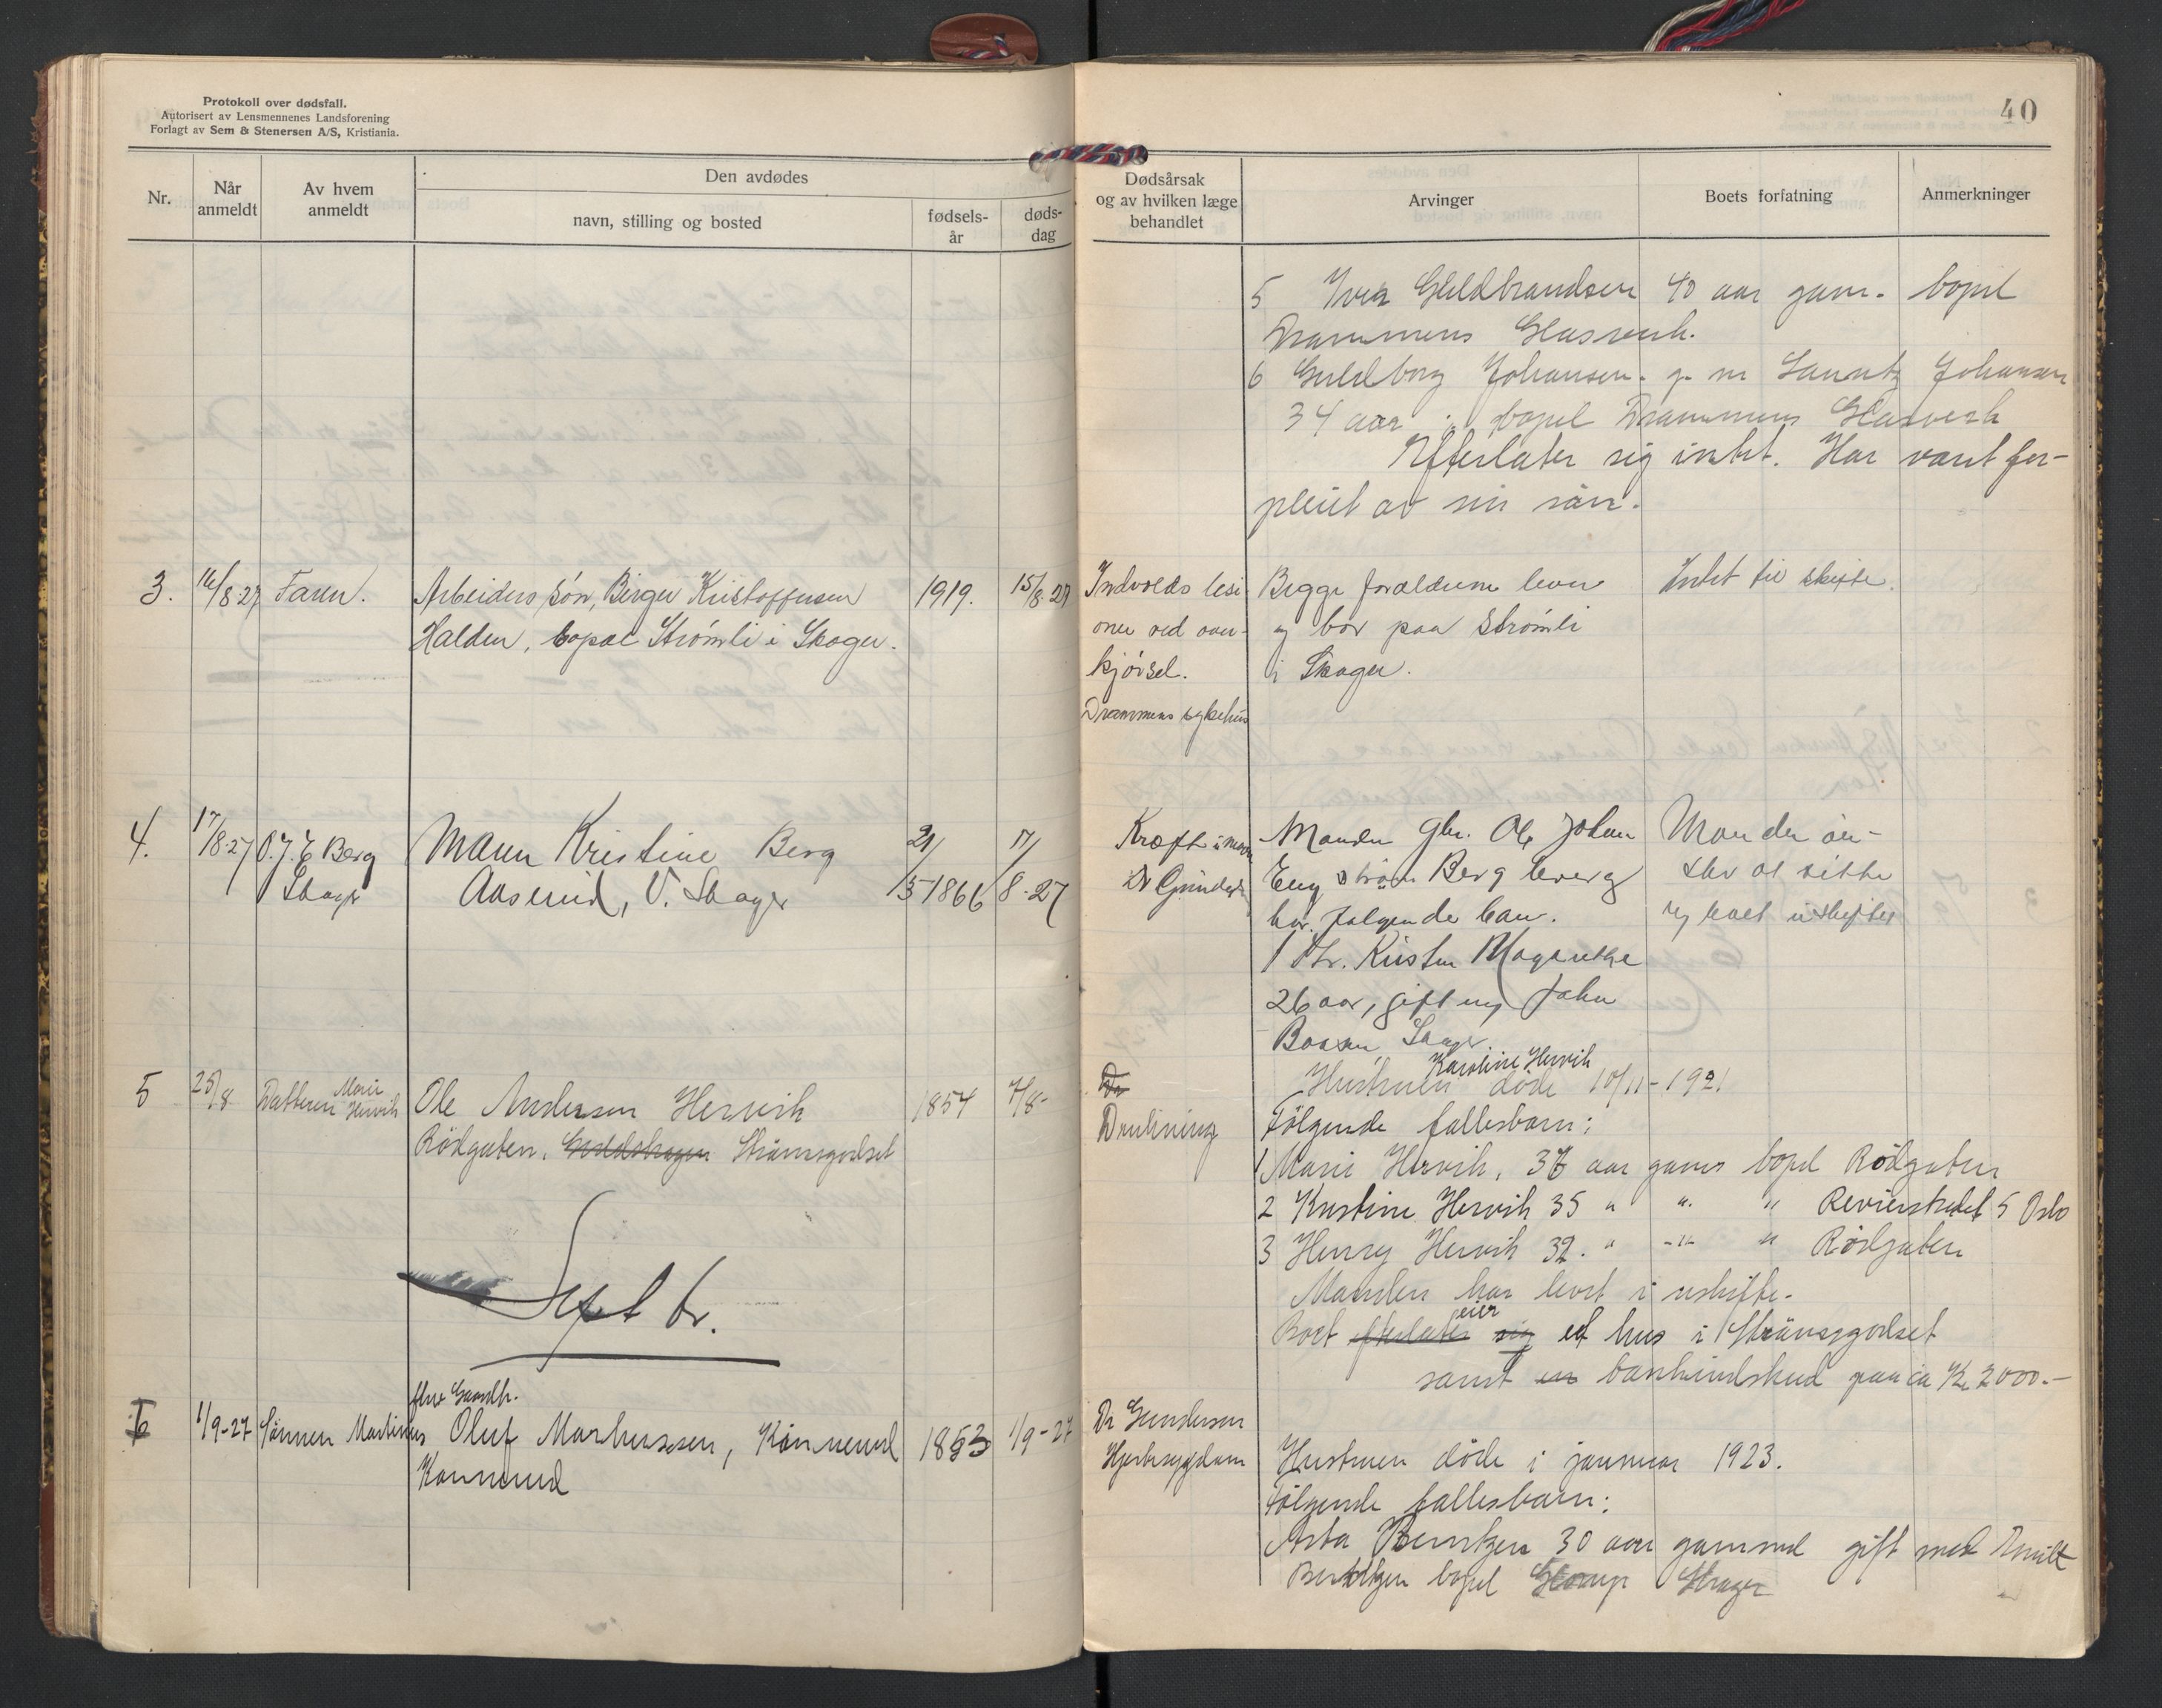 Protokoll over dødsfall.
Autorisert av Lensmennenes Landsforening
Forlagt av Sem & Stenersen A/S, Kristiania.
40
Nr.
Når anmeldt
Av hvem anmeldt
Den avdødes
navn, stilling og bosted
fødsels-
år
døds-
dag
Dødsårsak
og av hvilken læge
behandlet
Arvinger
Boets forfatning
Anmerkninger
5 Iver Guldbrandsen 40 aar gam. bopel
Drammens Glasverk.
6 Guldborg Johansen. g. m. Lauritz Johansen
34 aar bopel Drammens Glasverk
Efterlater sig intet. Har vært for-
pleiet av sin sön.
3. 16/8-27 Faren. Arbeiders søn, Birger Kristoffersen 1919. 15/8-27
Halden, bopæl Strømli i Skoger.
Indvolds lesi
oner ved over-
kjørsel.
Drammens sykehus
Begge forældrene lever
og bor paa Strømli
i Skoger.
Intet til skifte.
4. 17/8-27 O. J. E Berg
Skoger
Maren Kristine Berg
Aaserud, V. Skoger
21/5 1866
17/8-27
Kræft i maven
Dr
Manden Gbr. Ole Johan
Engström Berg lever og
har følgende barn.
1 Dtr. Kirsten Magrethe
26 aar, gift m/ John
Skoger
Manden øn-
sker at sitte
i uskiftet
5 25/8. Datteren Marie Hervik
Ole Andersen Hervik 1854 7/8-
Rödgaten. Strömsgodset
Drukning
Hustruen Karoline Hervik döde 10/11-1921
Følgende fællesbarn:
1 Marie Hervik, 37 aar gamel bopel Rödgaten
2 Kristine Hervik 35 " " " Revierstredet 5 Oslo
3 Henry Hervik 32. " -"- " Rödgaten
Manden har levet i uskifte.
Boet efterlater sig eier et hus i Strömsgodset
samt en bankindskud paa ca Kr 2000.-
Septbr.
6 1/9-27 Sönnen Martinius
fhv Gaardbr.
Oluf Markussen, Konnerud 1853 1/9-27
Konnerud
Dr Gundersen
Hjertesygdom
Hustruen döde i januar 1923.
Følgende fællesbarn:
Asta Berntzen 30 aar gammel gift med Emil
Berntzen bopel Skoger